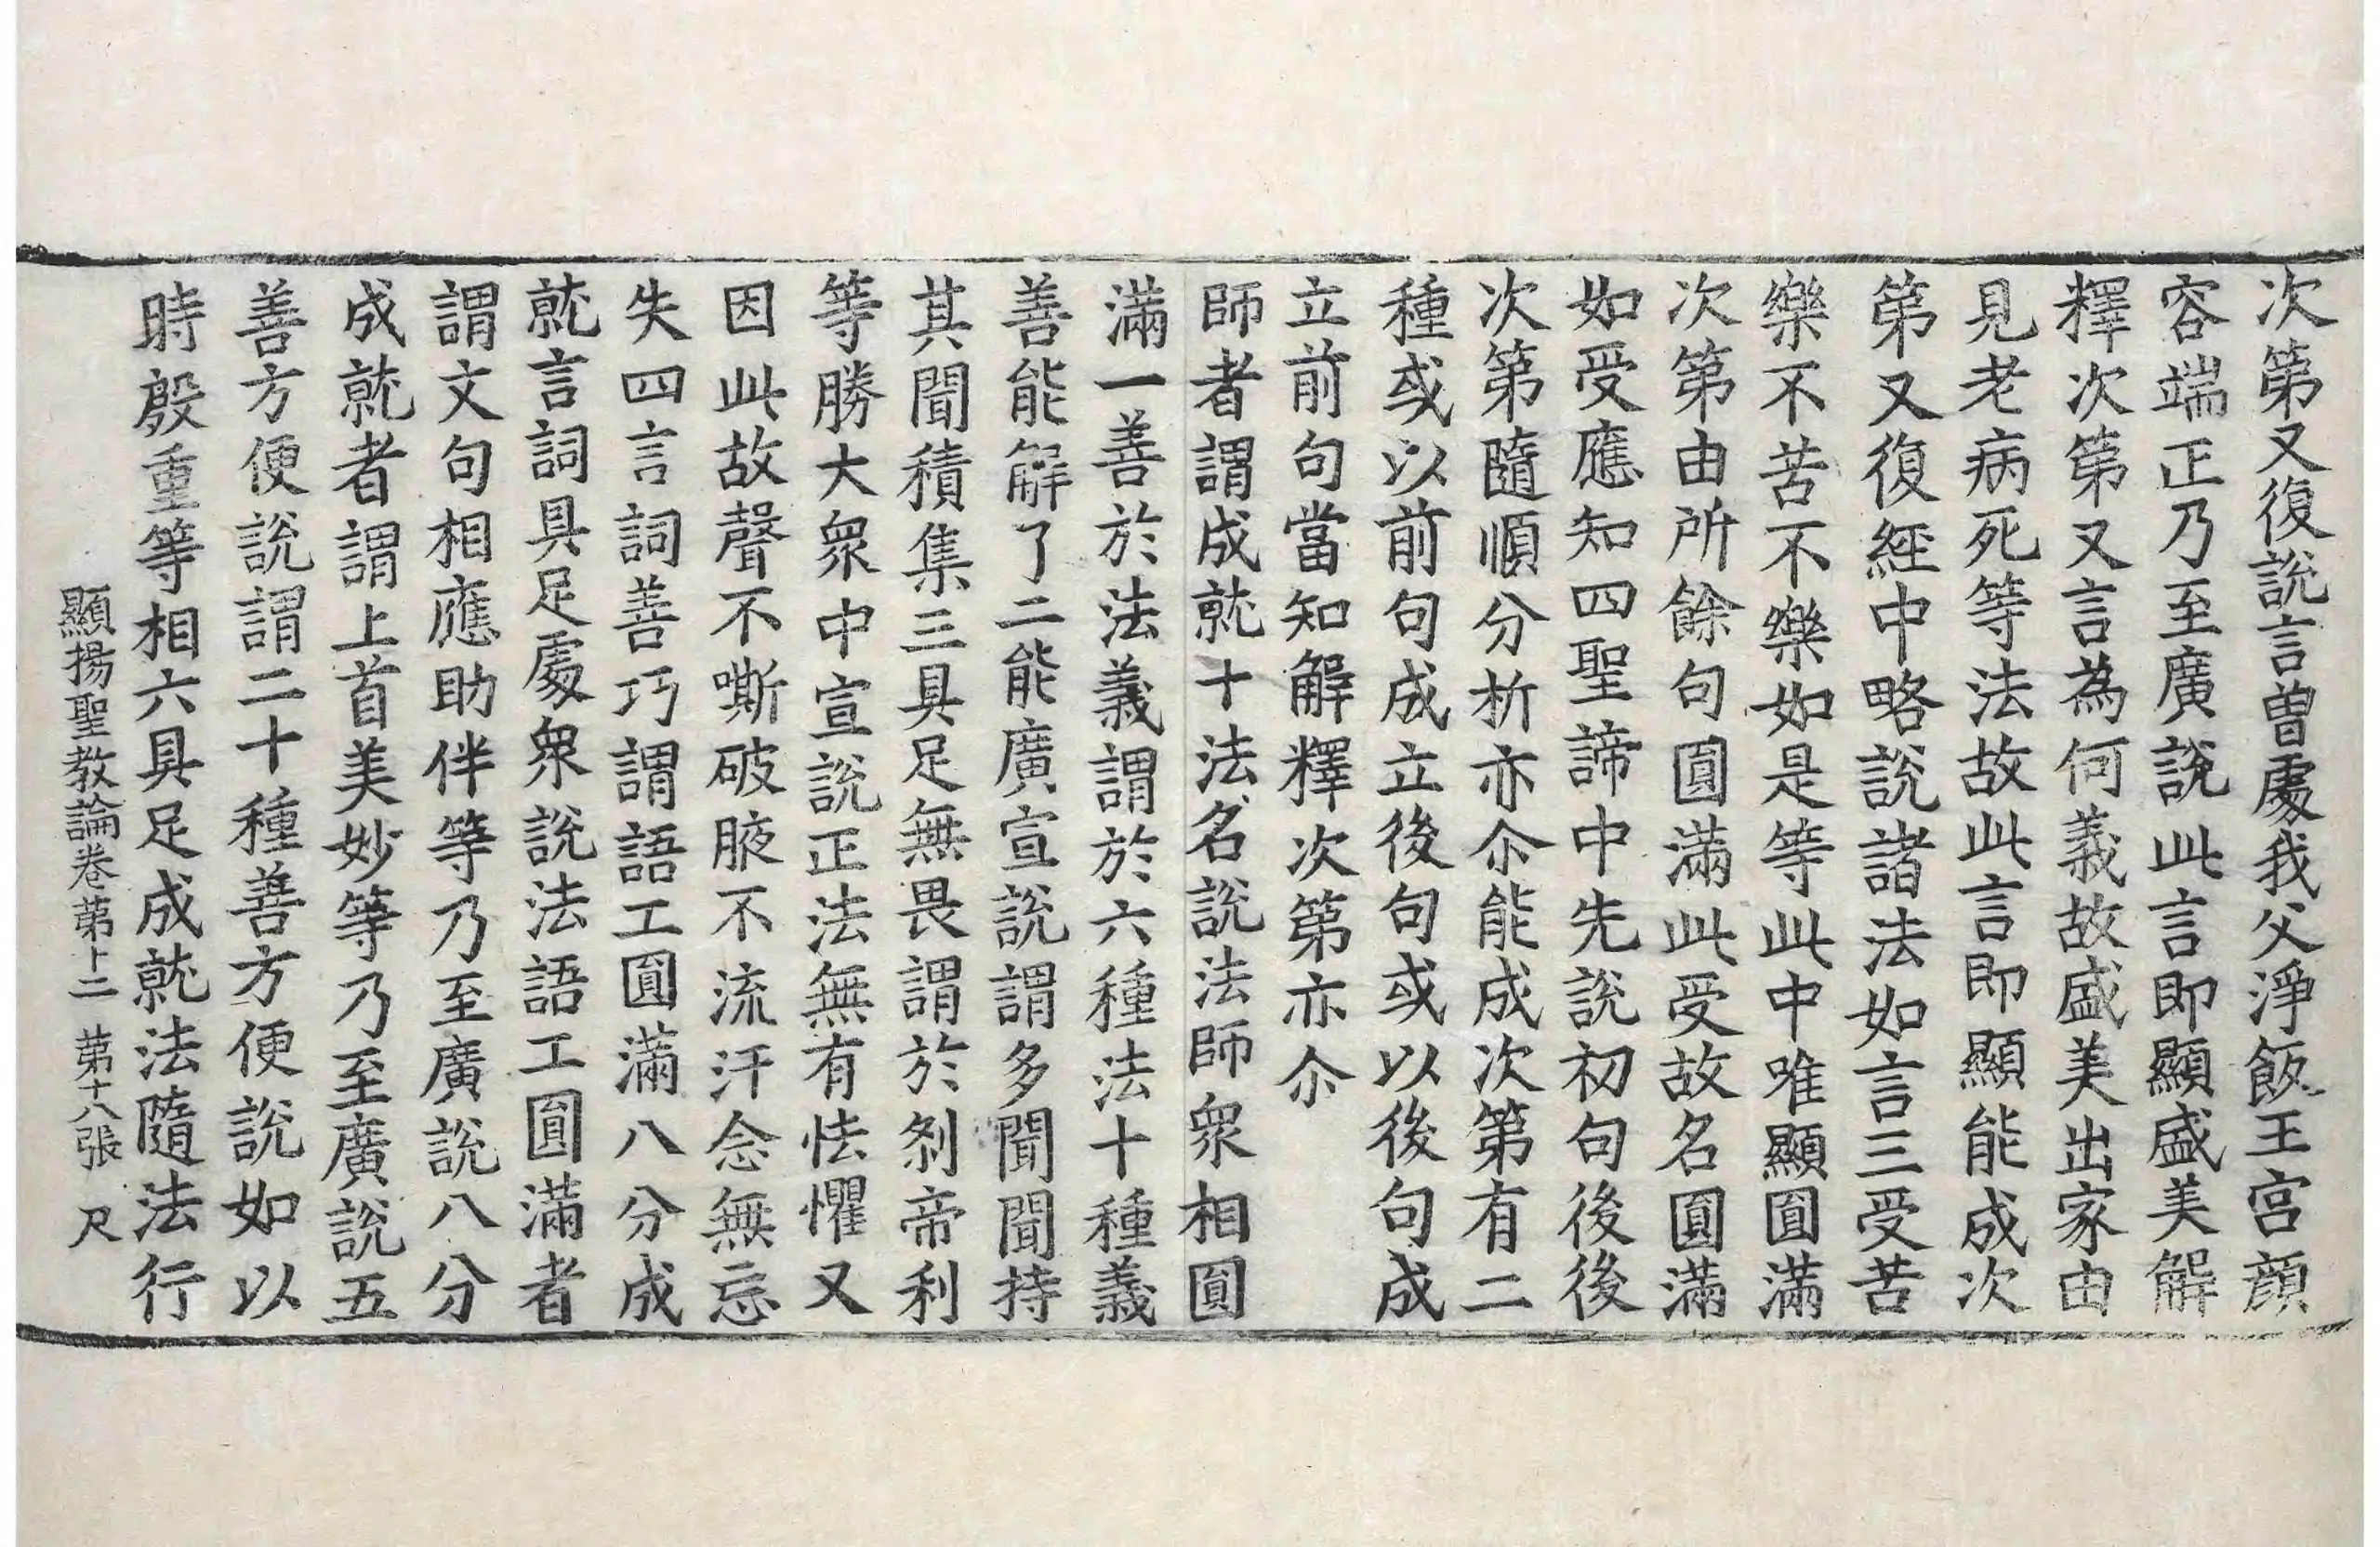 次第又復說言曽處我父淨飯王宫顔
容端正乃至廣說此言即顯盛美解
釋次第又言為何義故盛美出家由
見老病死等法故此言即顯能成次
第又復經中略說諸法如言三受苦
樂不苦不樂如是等此中唯顯圓滿
次第由所餘句圓滿此受故名圓滿
如受應知四聖諦中先說初句後後
次第隨順分析亦尒能成次第有二
種或以前句成立後句或以後句成
立前句當知解釋次第亦尒
師者謂成就十法名說法師衆相圓
滿一善於法義謂於六種法十種義
善能解了二能廣宣說謂多聞聞持
其聞積集三具足無畏謂於刹帝利
等勝大衆中宣說正法無有怯懼又
因此故聲不嘶破腋不流汗念無忘
失四言詞善巧謂語工圓滿八分成
就言詞具足處衆說法語工圓滿者
謂文句相應助伴等乃至廣說八分
成就者謂上首美妙等乃至廣說五
善方便說謂二十種善方便說如以
時殷重等相六具足成就法隨法行
顯揚聖教論卷第十二 第十八張 尺